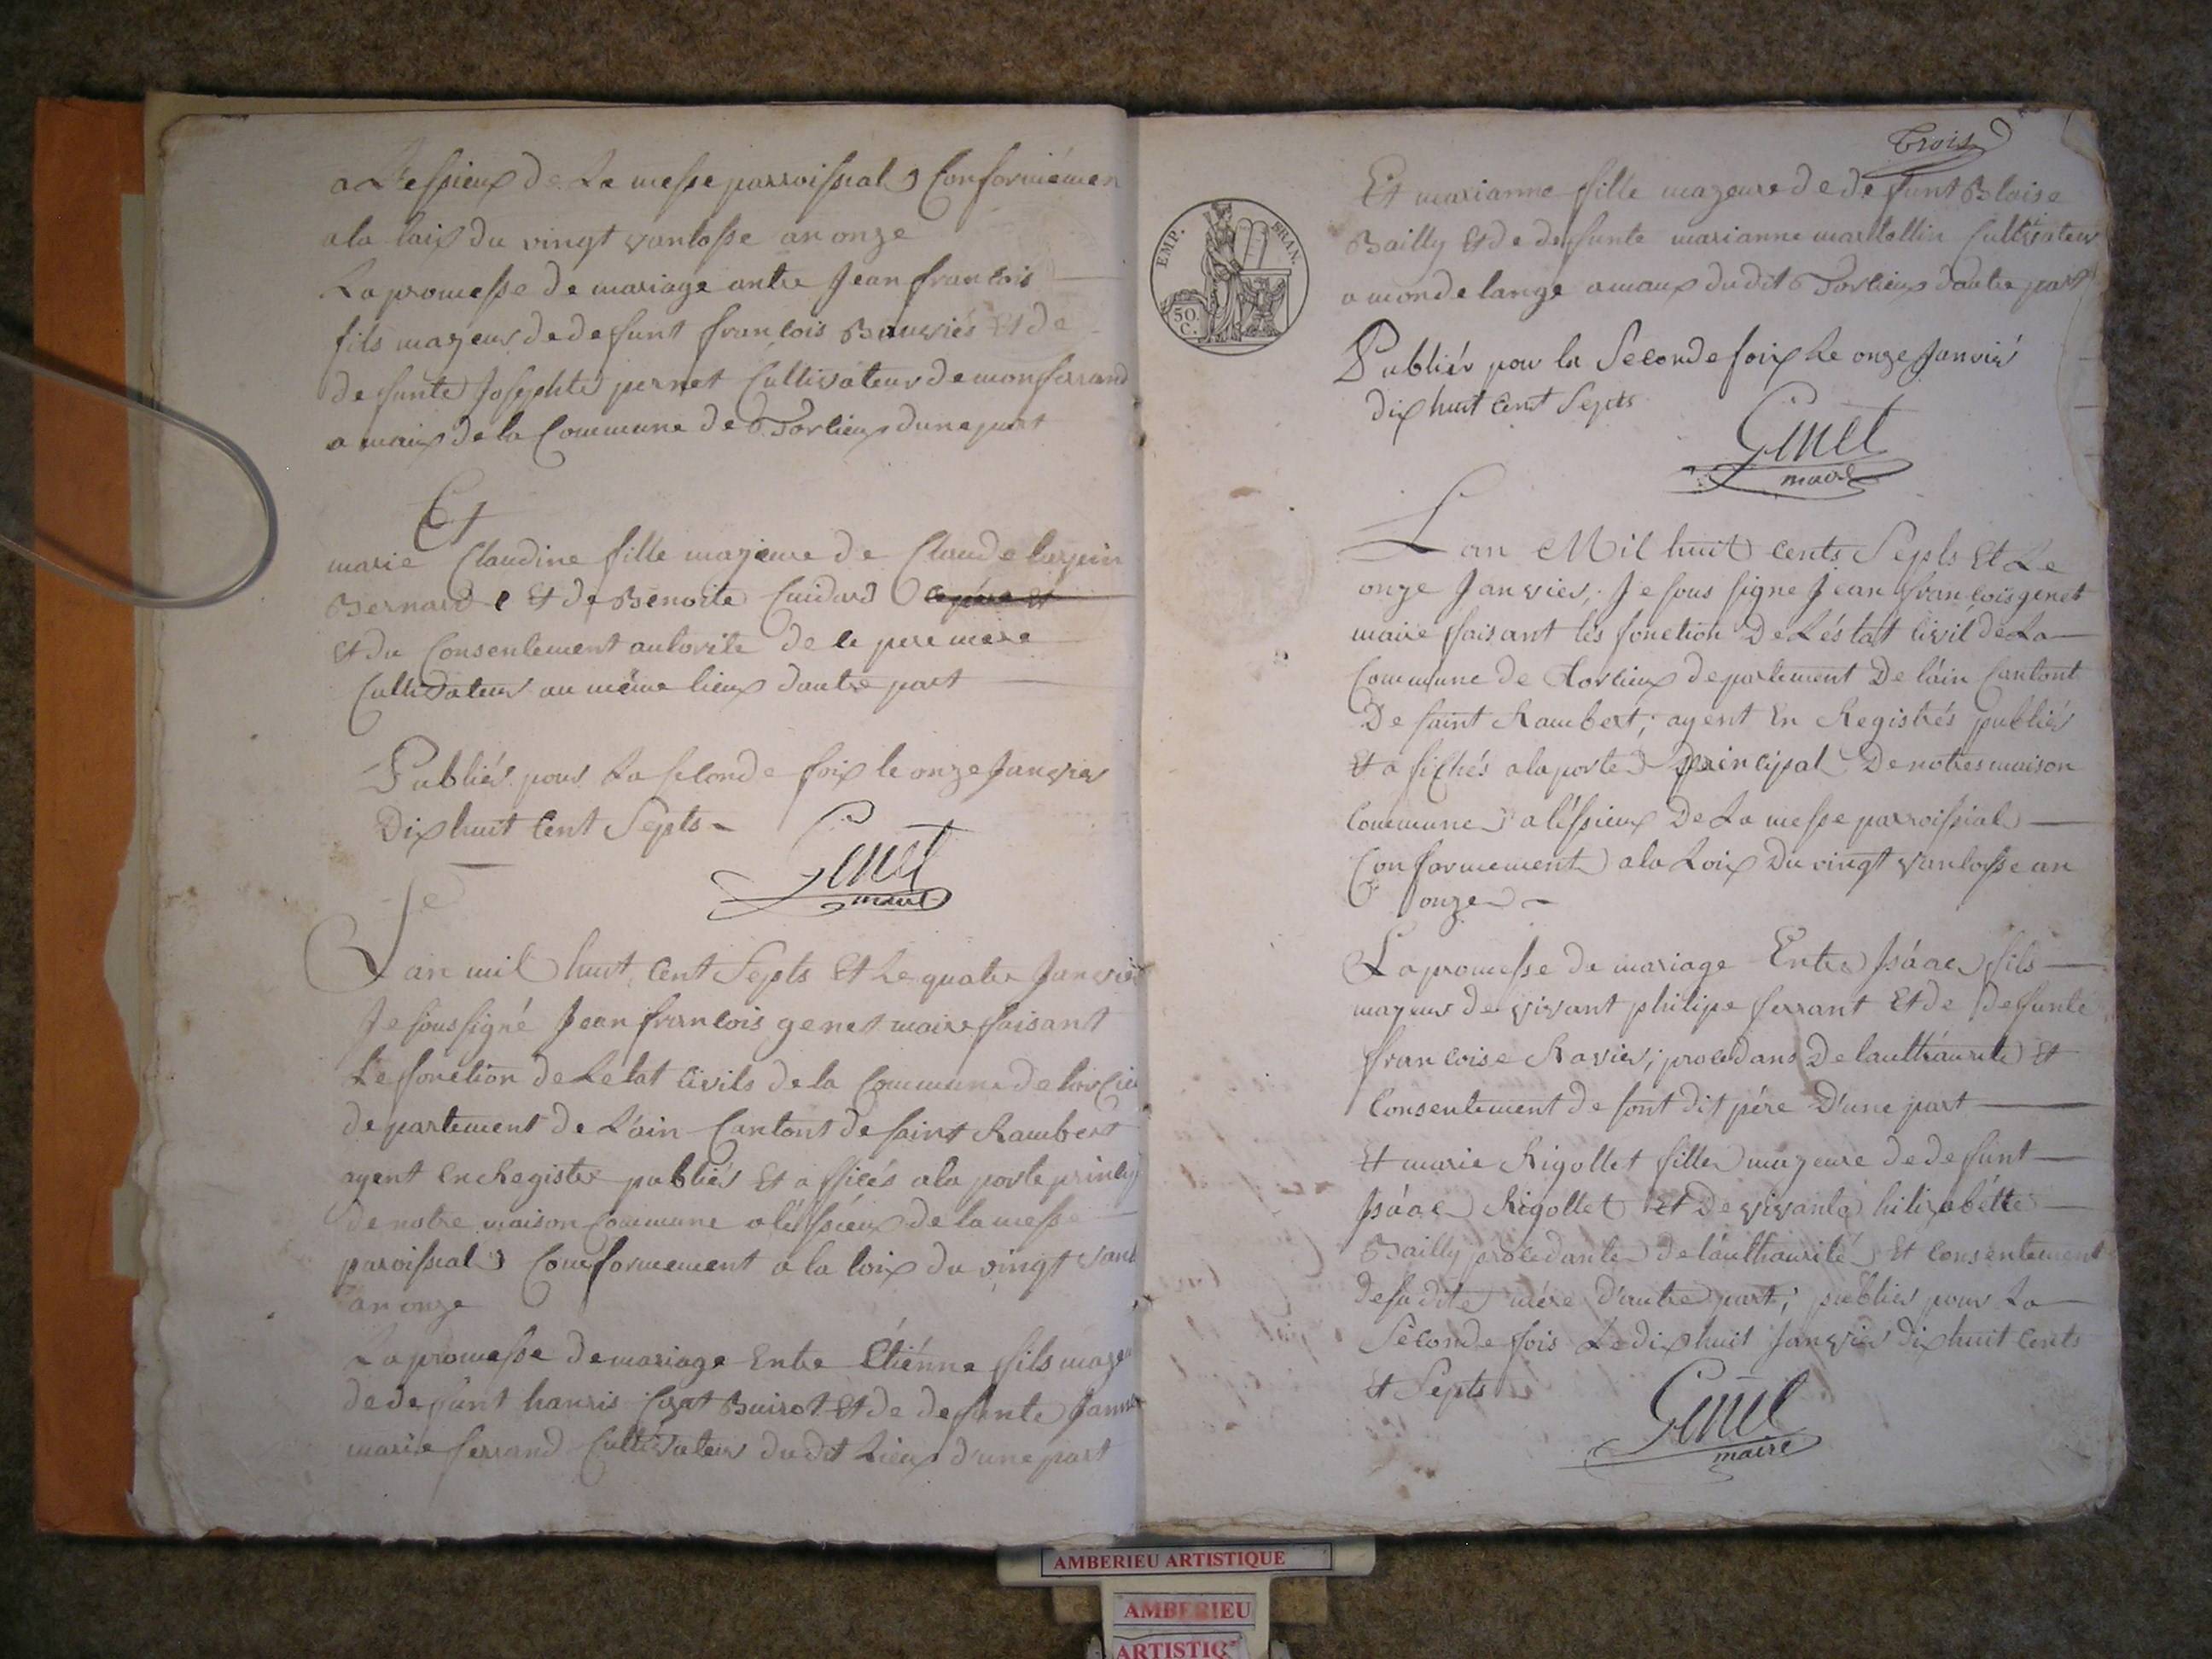 a Lessieux de La messe parroissial Conformémen
a la loix du vingt vantosse an onze
La promesse de mariage antre Jean francois
fils mazeur de defunt francois Bauviés Et de
defunte Josephte pernet Cultivateur de monferrand
a maux de la Commune de Torcieux dune part
Et
marie Claudine fille mazeure de Claude
Bernard Et de Benoite Cuidard
Et du Consentement autorite de le pere mere
Cultivateur au même lieux dautre part
Publiés pour La seconde foix le onze Janvier
Dix huit Cent Septs
Genet
maire
Lan mil huit Cent Septs Et Le quatre Janvier
Je soussigné Jean francois genet maire faisant
Le fonction de Letat Civils de la Commune de torcieu
departement de L'ain Cantont de saint Rambert
ayent En Register publiés Et afficés a la porte princip
de notre maison Commune a léssieux de la messe
paroissial Comformement a la loix du vingt vant
an onze
La promesse de mariage Entre Etiénne fils mazeu
de defunt hanris Cozat Buirot Et de defunte Janne
marie ferrand Cultivateur du dit Lieux d'une part
Trois
EMP. FRAN.
50 C.
Et marianne fille mazeure de defunt Blaise
Bailly Et de defunte marianne martollin Cultivateur
a mondelange amaux dudit Torcieux dautre part
Publiér pour la Seconde foix Le onze Janvié
dix huit Cent Septs
Genet
maire
Lan Mil huit Cents Septs Et Le
onze Janvier, Je sous signe Jean francois genet
maire faisant lés fonction De Léstat Civil de La
Commune de torcieux departement De l'ain Cantont
De saint Rambert; ayent En Registrés publiés
Et a fichés a la porte principal De notres maison
Commune a léssieux De La messe parroissial
Conformement a la Loix Du vingt vantosse an
onze
La promesse de mariage Entre Isáac fils
mazeur de vivant philipe ferrant Et de defunte
francoise Ravier; procedans De lauttháurité Et
Consentement de sont dit pére D'une part
Et marie Rigollet fille mazeure de defunt
Isáac Rigollet Et De vivante hilizabétte
Bailly procedante de láutthaurité Et Consentement
de sa dite mére d'autre part; publier pour La
Séconde fois Le dix huit Janvier dix huit Cents
Et Septs
Genet
maire
AMBERIEU ARTISTIQUE
AMBERIEU
ARTISTIQ